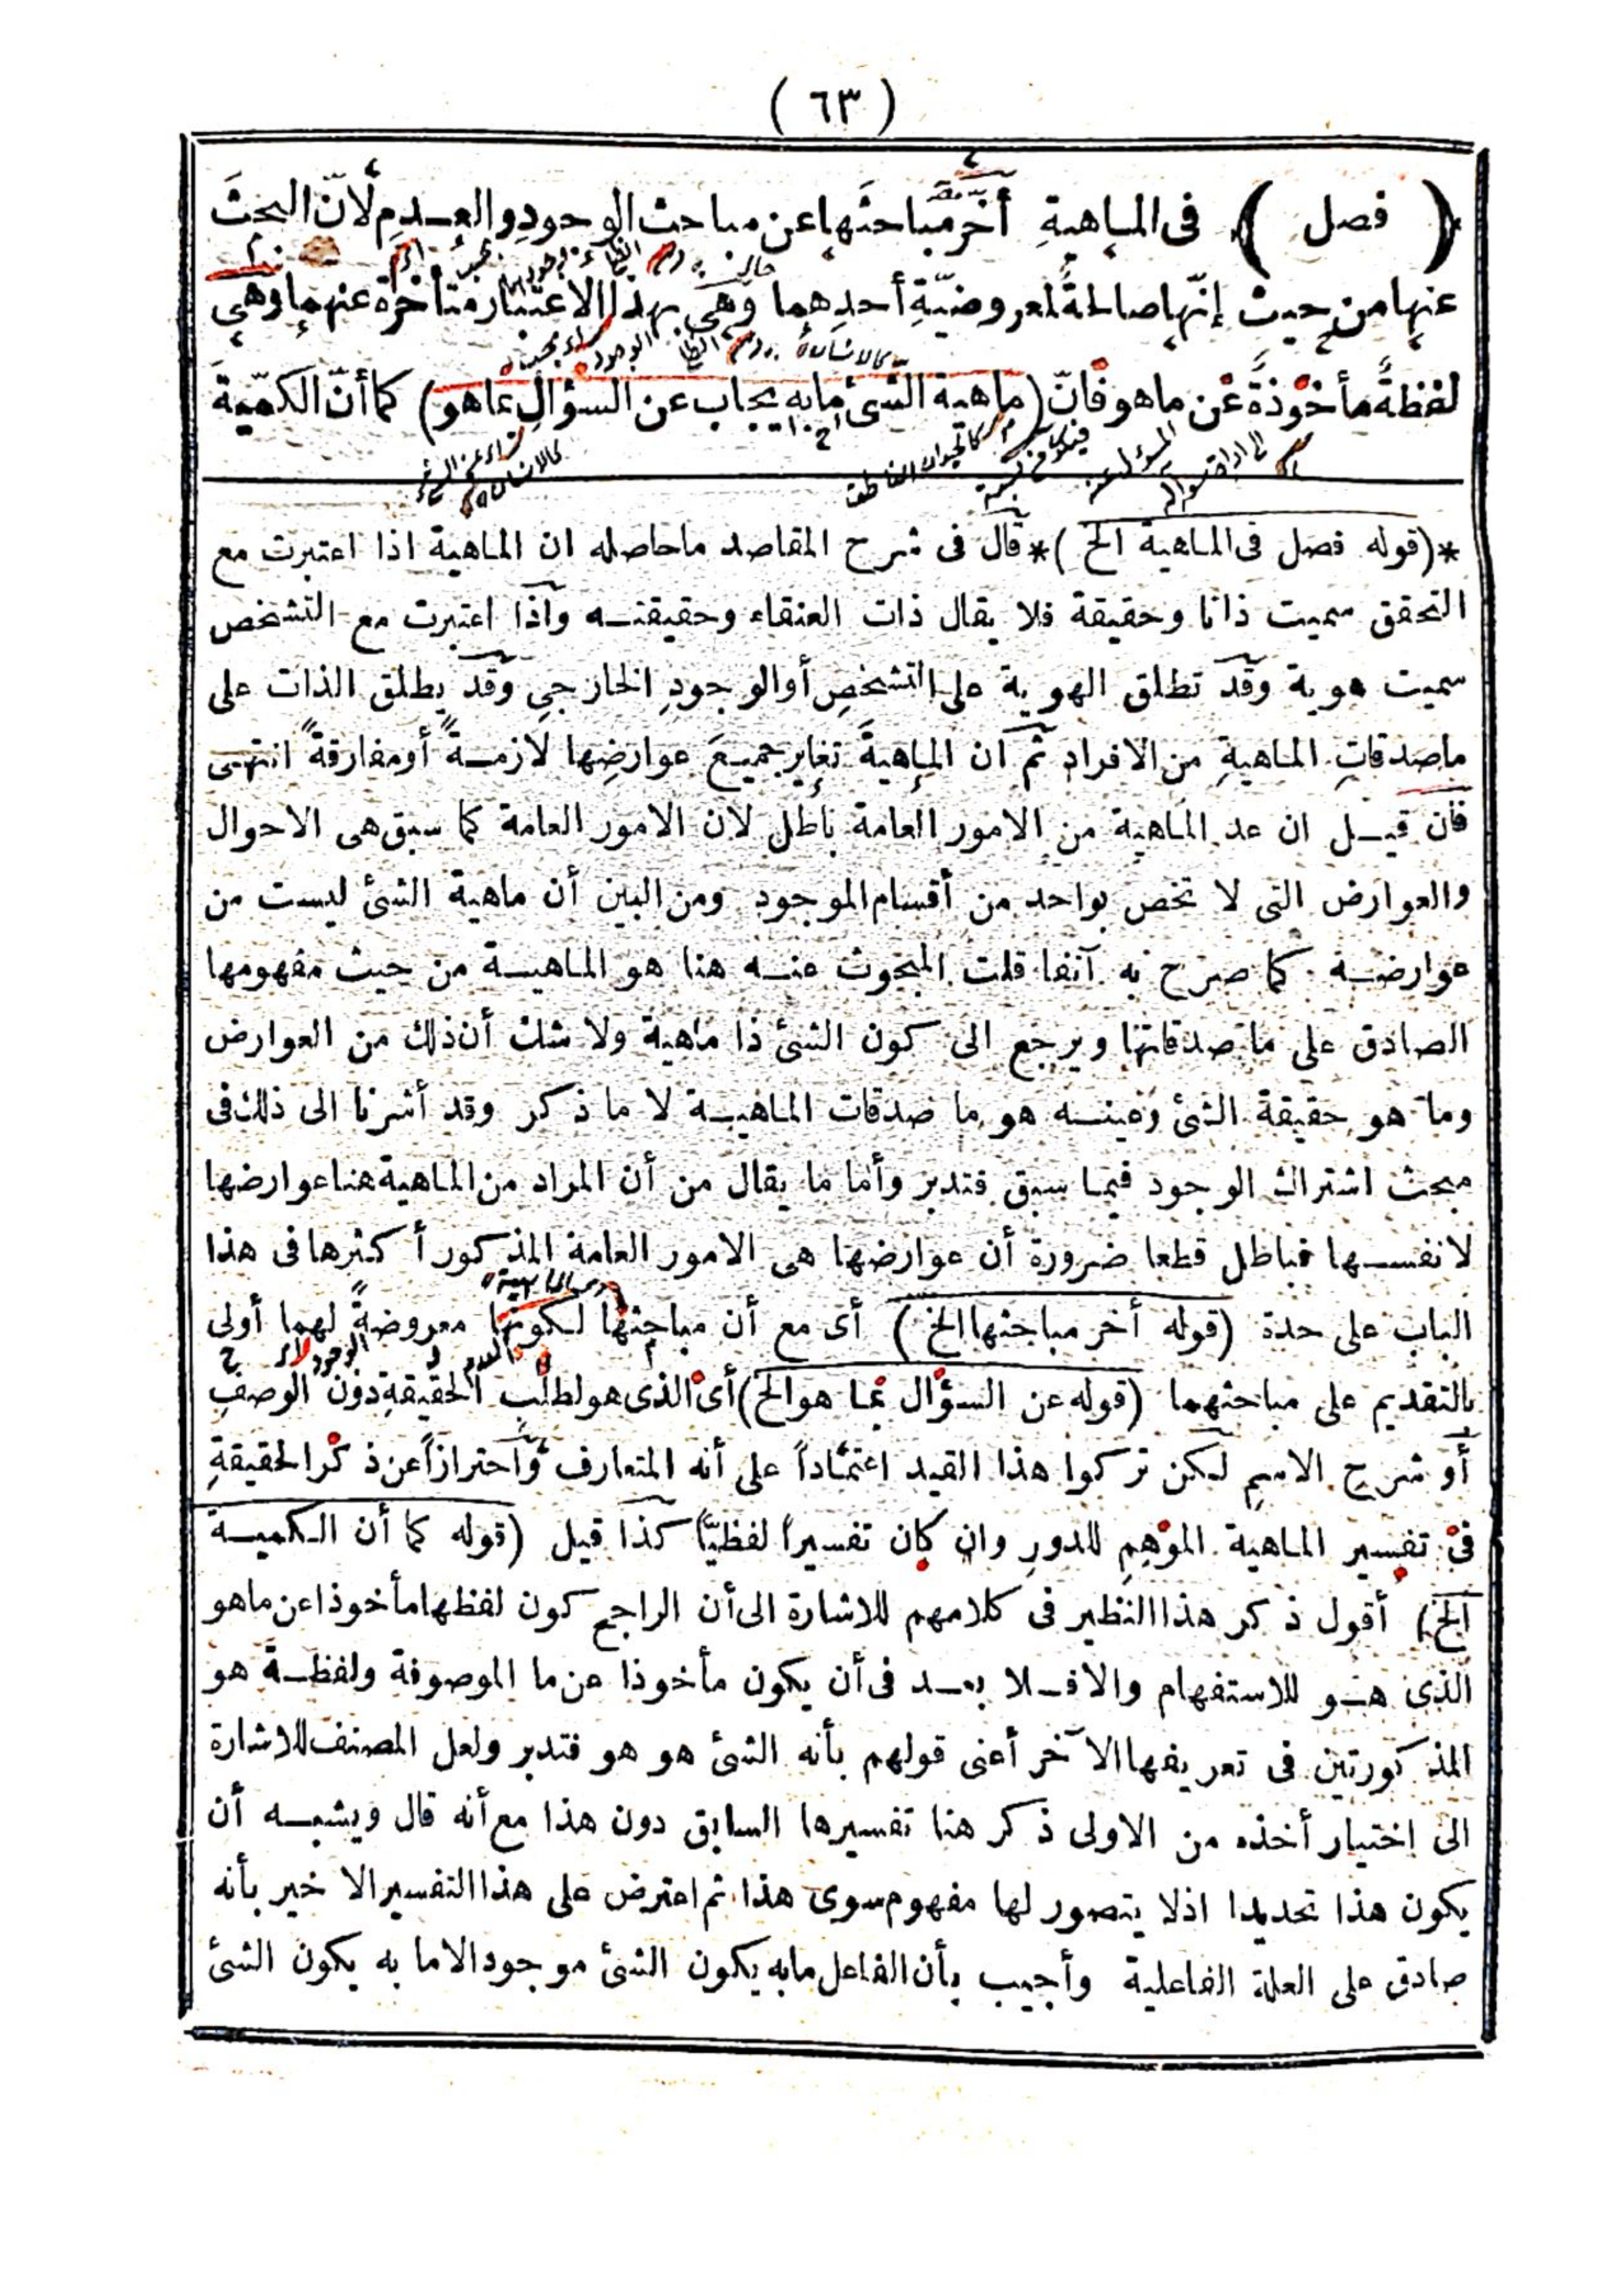 ( ٦٣ )
( فصل ) فى الماهيةِ أخّر مباحثَها عن مباحث الوجودِ والعدمِ لأنّ البحثَ
عنها من حيث إنّها صالحةٌ لمعروضيّةِ أحدِهما وهى بهذا الاعتبار متأخّرة عنهما وهى
لفظةٌ مأخوذةٌ عن ماهو فانّ (ماهية الشئ مابه يجاب عن السؤالِ بما هو) كما أنّ الكمّيّةَ
*(قوله فصل فى الماهية الخ)* قال فى شرح المقاصد ماحاصله ان الماهية اذا اعتبرت مع
التحقق سميت ذاتا وحقيقة فلا يقال ذات العنقاء وحقيقته واذا اعتبرت مع التشخص
سميت هوية وقد تطلق الهوية على التشخصِ أو الوجودِ الخارجىِ وقد يطلق الذات على
ماصدقاتِ الماهيةِ من الافراد ثم ان الماهيةَ تغاير جميعَ عوارضِها لازمةً أو مفارقةً انتهى
فان قيل ان عد الماهية من الامور العامة باطل لان الامور العامة كما سبق هى الاحوال
والعوارض التى لا تخص بواحد من أقسام الموجود ومن البين أن ماهية الشئ ليست من
عوارضه كما صرح به آنفا قلت المبحوث عنه هنا هو الماهية من حيث مفهومها
الصادق على ماصدقاتها ويرجع الى كون الشئ ذا ماهية ولا شك أن ذلك من العوارض
وما هو حقيقة الشئ وعينه هو ما صدقات الماهية لا ما ذكر وقد أشرنا الى ذلك فى
مبحث اشتراك الوجود فيما سبق فتدبر وأما ما يقال من أن المراد من الماهية هنا عوارضها
لانفسها فباطل قطعا ضرورة أن عوارضها هى الامور العامة المذكور أكثرها فى هذا
الباب على حدة (قوله أخر مباحثها الخ) أى مع أن مباحثها لكونها معروضةً لهما أولى
بالتقديم على مباحثهما (قوله عن السؤال بما هو الخ) أى الذى هو لطلب الحقيقةِ دون الوصفِ
أو شرح الاسمِ لكن تركوا هذا القيد اعتماداً على أنه المتعارف واحترازاً عن ذكر الحقيقةِ
فى تفسير الماهية الموهِمِ للدورِ وان كان تفسيراً لفظيّا كذا قيل (قوله كما أن الكمية
الخ) أقول ذكر هذا النظير فى كلامهم للاشارة الى أن الراجح كون لفظها مأخوذا عن ماهو
الذى هو للاستفهام والا فلا بعد فى أن يكون مأخوذا عن ما الموصوفة ولفظة هو
المذكورتين فى تعريفها الآخر أعنى قولهم بأنه الشئ هو هو فتدبر ولعل المصنف للاشارة
الى اختيار أخذه من الاولى ذكر هنا تفسيرها السابق دون هذا مع أنه قال ويشبه أن
يكون هذا تحديدا اذلا يتصور لها مفهوم سوى هذا ثم اعترض على هذا التفسير الاخير بأنه
صادق على العلة الفاعلية وأجيب بأن الفاعل مابه يكون الشئ موجودا لا ما به يكون الشئ